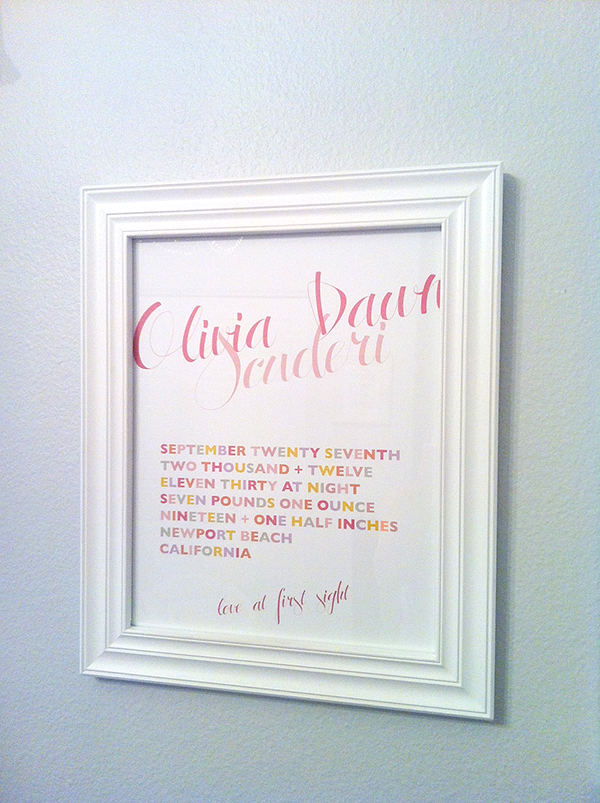 Olivia Dawn
Scuderi
SEPTEMBER TWENTY SEVENTH
TWO THOUSAND + TWELVE
ELEVEN THIRTY AT NIGHT
SEVEN POUNDS ONE OUNCE
NINETEEN + ONE HALF INCHES
NEWPORT BEACH
CALIFORNIA
love at first sight